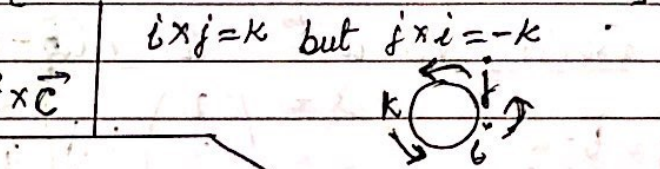 i×j=k but j×i=-k
×C⃗
j
k
i